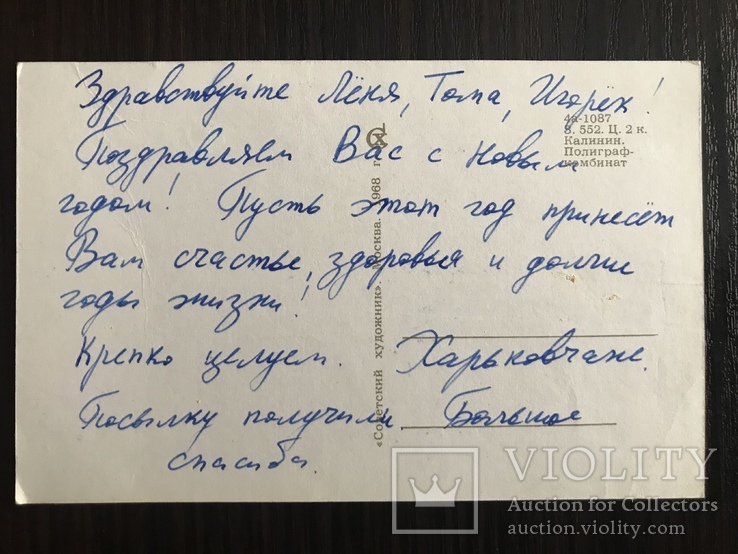 Здравствуйте Лёня, Тома, Игорёк!
Поздравляем Вас с новым
годом! Пусть этот год принесёт
Вам счастье, здоровья и долгие
годы жизни!
Крепко целуем. Харьковчане.
Посылку получили Большое
спасибо.
4а-1087
8. 552. Ц. 2 к.
Калинин.
Полиграф-
комбинат
«Советский художник». Москва. 1968 г.
VIOLITY
Auction for Collectors
auction.violity.com